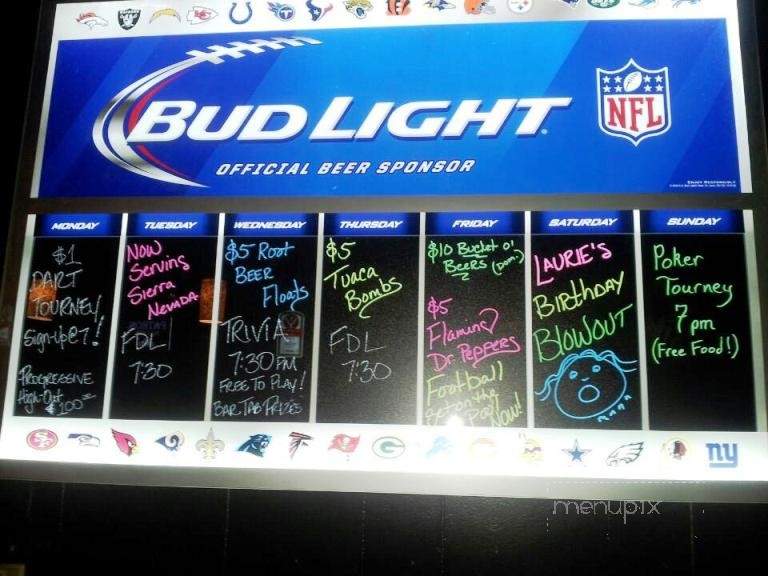 BUD LIGHT
OFFICIAL BEER SPONSOR
NFL
ENJOY RESPONSIBLY
MONDAY
$1
DART
TOURNEY
Sign-up@7!
PROGRESSIVE
High-Out
$100
TUESDAY
NOW
Serving
Sierra
NEVADA
FDL
7:30
WEDNESDAY
$5 Root
BEER
Floats
TRIVIA
7:30 PM
FREE TO PLAY!
BAR TAB PRIZES
THURSDAY
$5
Tuaca
Bombs
FDL
7:30
FRIDAY
$10 Bucket o'
Beers (Dom.)
$5
Flaming
Dr. Peppers
Football
Get on the
Pool Now!
SATURDAY
LAURIE'S
BIRTHDAY
BLOWOUT
SUNDAY
Poker
Tourney
7pm
(Free Food!)
ny
menupix